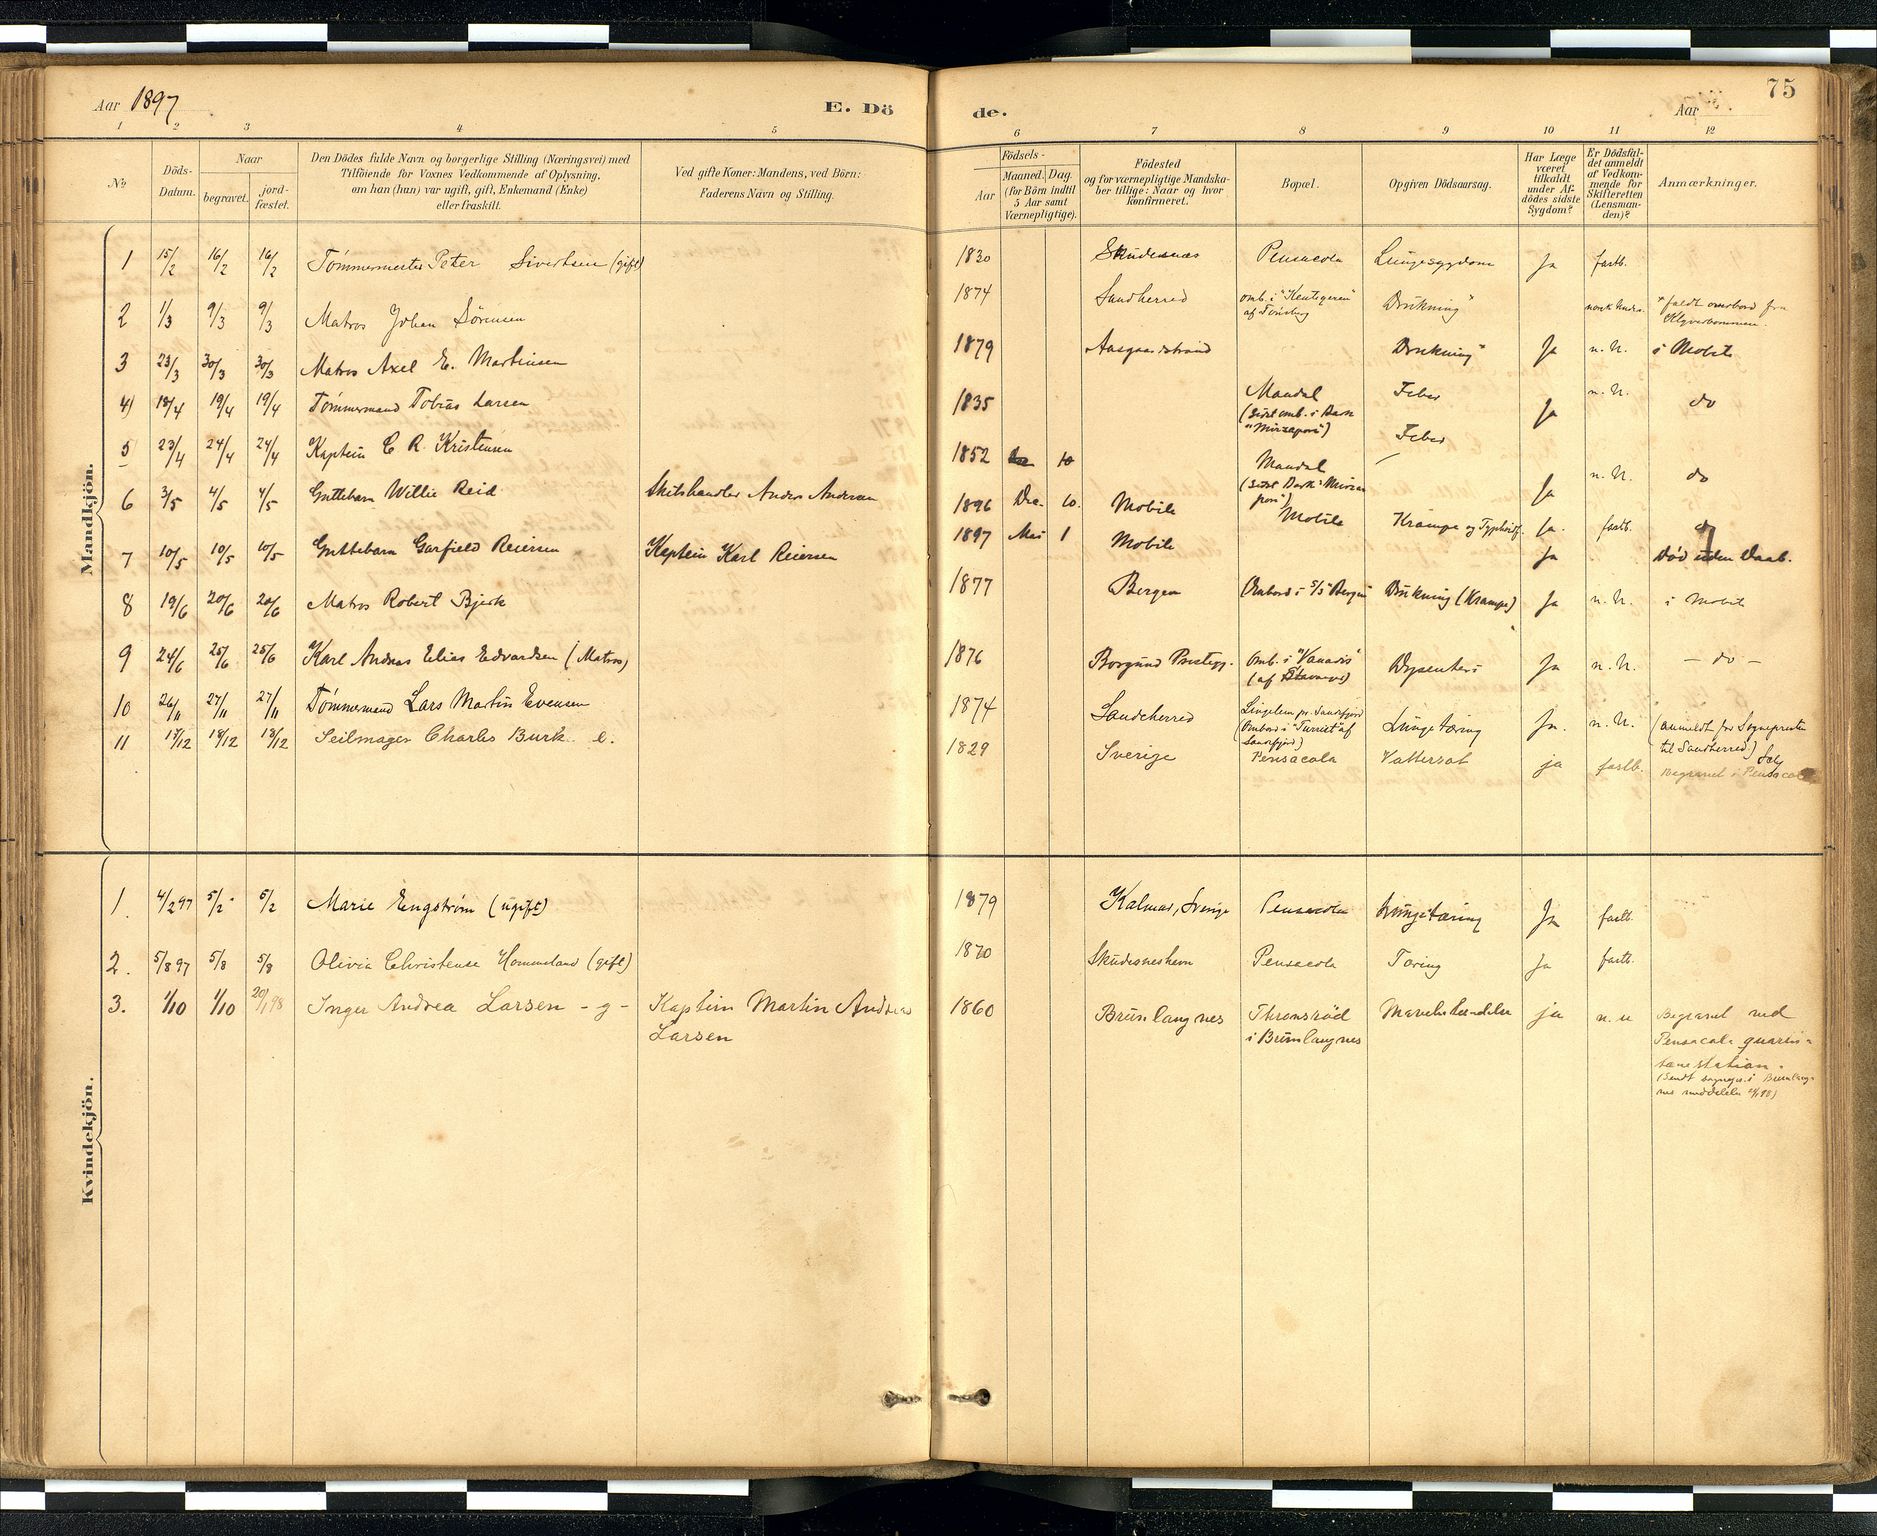 Aar 1897
E. Dö de.
Aar
75
1 2 3 4 5 6 7 8 9 10 11 12
No
Döds-Datum.
Naar
begravet.
jord-fæstet.
Den Dödes fulde Navn og borgerlige Stilling (Næringsvei) med
Tilföiende for Voxnes Vedkommende af Oplysning,
om han (hun) var ugift, gift, Enkemand (Enke)
eller fraskilt.
Ved gifte Koner: Mandens, ved Börn:
Faderens Navn og Stilling.
Födsels-
Aar
Maaned. Dag.
(for Börn indtil
5 Aar samt
Værnepligtige).
Födested
og for værnepligtige Mandska-
ber tillige: Naar og hvor
konfirmeret.
Bopæl.
Opgiven Dödsaarsag.
Har Læge
været
tilkaldt
under Af-
dödes sidste
Sygdom?
Er Dödsfal-
det anmeldt
af Vedkom-
mende for
Skifteretten
(Lensman-
den)?
Anmærkninger.
Mandkjön.
1 15/2 16/2 16/2 Tømmermester Peter Sivertsen (gift) 1830 Skudesnæs Pensacola Lungesygdom Ja fastb.
2 1/3 9/3 9/3 Matros Johan Sörensen 1874 Sandherred omb. i "Kentigern" af Tönsberg Drukning norsk Unders. * faldt overbord fra Klyverbommen.
3 23/3 30/3 30/3 Matros Axel E. Martinsen 1879 Aasgaardstrand Drukning Ja n. U. i Mobile
4) 18/4 19/4 19/4 Tømmermand Tobias Larsen 1835 Mandal (sidst omb. i Bark "Mirzapore") Feber Ja n. U. do
5 23/4 24/4 24/4 Kaptein C. R. Kristensen 1852 10 Mandal (sidst Bark "Mirzapore") Feber Ja n. U. do
6 3/5 4/5 4/5 Guttebarn Willie Reid Skibshandler Anders Andersen 1896 Dec. 10. Mobile Mobile Krampe og Ja. fastb. do
7 10/5 10/5 10/5 Guttebarn Garfield Reiersen Kaptein Karl Reiersen 1897 Mai 1 Mobile Ja Död uden Daab.
8 19/6 20/6 20/6 Matros Robert Bjerk 1877 Bergen Ombord i S/S "Bergen" Drukning (Krampe) Ja n. U. i Mobile
9 24/6 25/6 25/6 Karl Andreas Elias Edvardsen (Matros) 1876 Borgund Prestegj. Omb. i "Vanadis" (af Stavanger) Dysenteri Ja n. U. - do -
10 26/11 27/11 27/11 Tømmermand Lars Martin Evensen 1874 Sandeherred Lingelem pr. Sandefjord (Ombord i "Turrist" af Sandefjord) Lungetæring Ja. n. U. (anmeldt for Sognepresten til Sandherred.)
11 17/12 18/12 18/12 Seilmager Charles Burk. e. 1829 Sverige Pensacola Vattersot ja fastb. Begravet i Pensacola
Kvindekjön.
1. 4/2 97 5/2 5/2 Marie Engström (ugift) 1879 Kalmar, Sverige Pensacola Lungetæring Ja fastb.
2. 5/8 97 5/8 5/8 Olivia Christense Hommeland (gift) 1870 Skudesneshavn Pensacola Tæring Ja fastb.
3. 1/10 1/10 20/1 98 Inger Andrea Larsen - g - Kaptein Martin Andreas Larsen 1860 Brunlangnes Thronsröd i Brunlangnes ja n. u Begravet ved
Pensacola quaran-
tænestation.
(Sendt sogneprs. i Brunlang-
nes meddelelse 98)